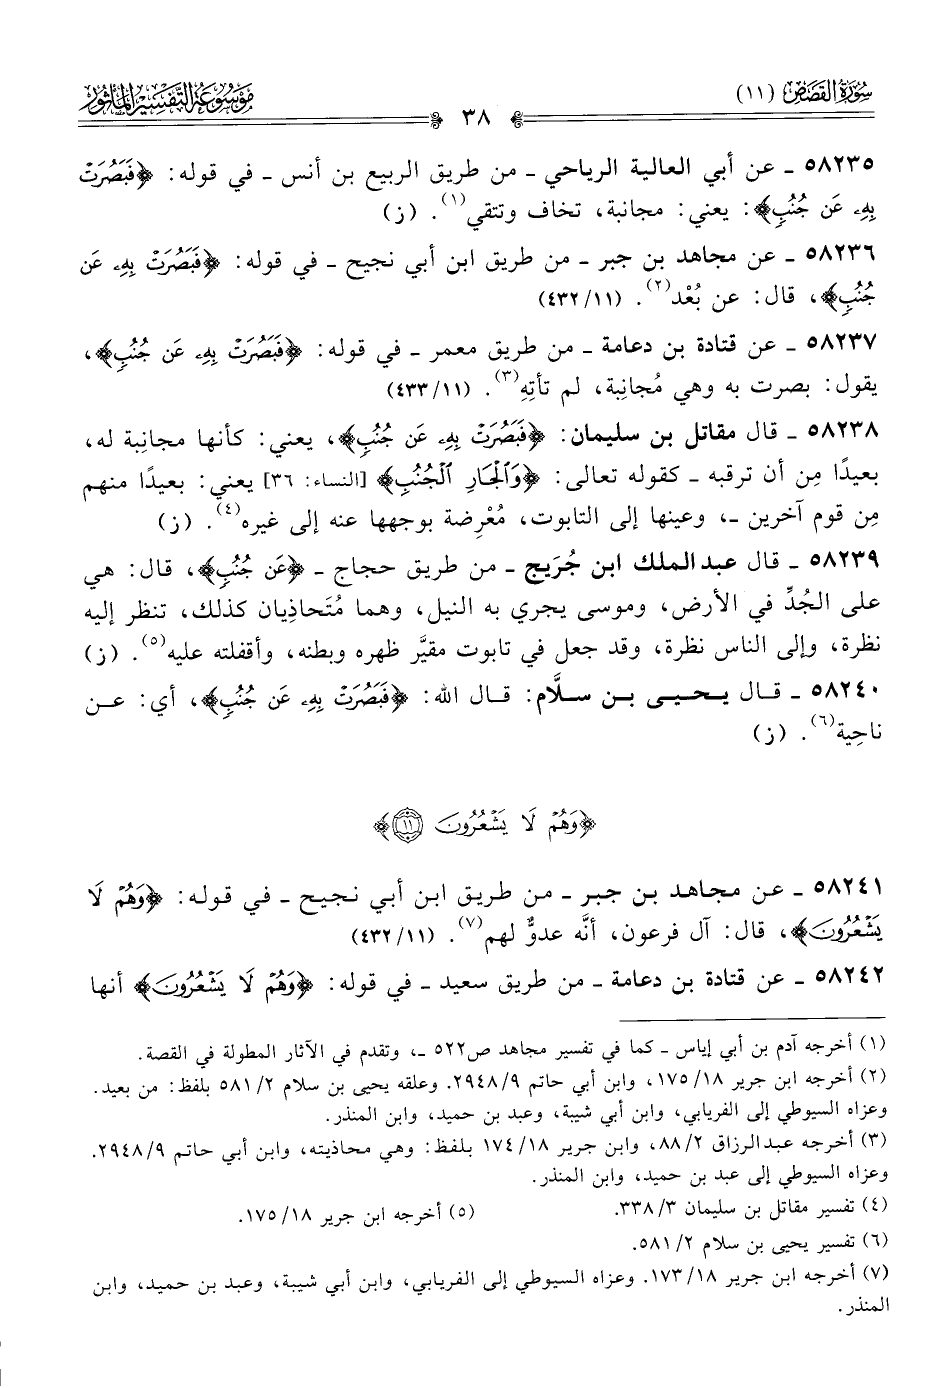 سُورَةُ القَصَصِ (١١)
٣٨
مَوْسُوعَةُ التَّفْسِيرِ المَأْثُورِ
٥٨٢٣٥ ـ عن أبي العالية الرياحي ـ من طريق الربيع بن أنس ـ في قوله: ﴿فَبَصُرَتْ
بِهِۦ عَن جُنُبٍ﴾: يعني: مجانبة، تخاف وتتقي(١). (ز)
٥٨٢٣٦ ـ عن مجاهد بن جبر ـ من طريق ابن أبي نجيح ـ في قوله: ﴿فَبَصُرَتْ بِهِۦ عَن
جُنُبٍ﴾، قال: عن بُعْد(٢). (٤٣٢/١١)
٥٨٢٣٧ ـ عن قتادة بن دعامة ـ من طريق معمر ـ في قوله: ﴿فَبَصُرَتْ بِهِۦ عَن جُنُبٍ﴾،
يقول: بصرت به وهي مُجانِبة، لم تأتِهِ(٣). (٤٣٣/١١)
٥٨٢٣٨ ـ قال مقاتل بن سليمان: ﴿فَبَصُرَتْ بِهِۦ عَن جُنُبٍ﴾، يعني: كأنها مجانِبة له،
بعيدًا مِن أن ترقبه ـ كقوله تعالى: ﴿وَٱلْجَارِ ٱلْجُنُبِ﴾ [النساء: ٣٦] يعني: بعيدًا منهم
مِن قوم آخرين ـ، وعينها إلى التابوت، مُعْرِضة بوجهها عنه إلى غيره(٤). (ز)
٥٨٢٣٩ ـ قال عبدالملك ابن جُرَيج ـ من طريق حجاج ـ ﴿عَن جُنُبٍ﴾، قال: هي
على الجُدِّ في الأرض، وموسى يجري به النيل، وهما مُتَحاذِيان كذلك، تنظر إليه
نظرة، وإلى الناس نظرة، وقد جعل في تابوت مقيَّر ظهره وبطنه، وأقفلته عليه(٥). (ز)
٥٨٢٤٠ ـ قال يحيى بن سلَّام: قال الله: ﴿فَبَصُرَتْ بِهِۦ عَن جُنُبٍ﴾، أي: عن
ناحِية(٦). (ز)
﴿وَهُمْ لَا يَشْعُرُونَ ١١﴾
٥٨٢٤١ ـ عن مجاهد بن جبر ـ من طريق ابن أبي نجيح ـ في قوله: ﴿وَهُمْ لَا
يَشْعُرُونَ﴾، قال: آل فرعون، أنَّه عدوٌّ لهم(٧). (٤٣٢/١١)
٥٨٢٤٢ ـ عن قتادة بن دعامة ـ من طريق سعيد ـ في قوله: ﴿وَهُمْ لَا يَشْعُرُونَ﴾ أنها
(١) أخرجه آدم بن أبي إياس ـ كما في تفسير مجاهد ص٥٢٢ ـ، وتقدم في الآثار المطولة في القصة.
(٢) أخرجه ابن جرير ١٧٥/١٨، وابن أبي حاتم ٢٩٤٨/٩. وعلقه يحيى بن سلام ٥٨١/٢ بلفظ: من بعيد.
وعزاه السيوطي إلى الفريابي، وابن أبي شيبة، وعبد بن حميد، وابن المنذر.
(٣) أخرجه عبدالرزاق ٨٨/٢، وابن جرير ١٧٤/١٨ بلفظ: وهي محاذيته، وابن أبي حاتم ٢٩٤٨/٩.
وعزاه السيوطي إلى عبد بن حميد، وابن المنذر.
(٤) تفسير مقاتل بن سليمان ٣٣٨/٣. (٥) أخرجه ابن جرير ١٧٥/١٨.
(٦) تفسير يحيى بن سلام ٥٨١/٢.
(٧) أخرجه ابن جرير ١٧٣/١٨. وعزاه السيوطي إلى الفريابي، وابن أبي شيبة، وعبد بن حميد، وابن
المنذر.